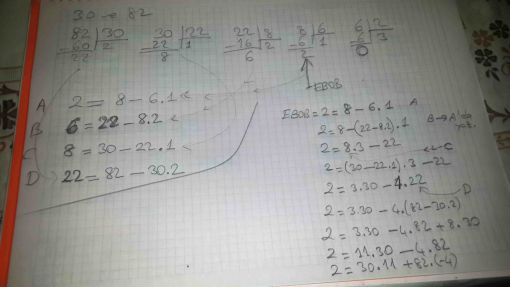 30 ve 82
82 | 30   30 | 22   22 | 8   8 | 6   6 | 2
-60 | 2   -22 | 1   -16 | 2   -6 | 1   -6 | 3
22   8   6   2   0
EBOB
A 2 = 8 - 6.1
B 6 = 22 - 8.2
C 8 = 30 - 22.1
D 22 = 82 - 30.2
EBOB = 2 = 8 - 6.1 A
2 = 8 - (22 - 8.2).1 B → A'da
2 = 8.3 - 22
2 = (30 - 22.1).3 - 22 C
2 = 3.30 - 4.22
D
2 = 3.30 - 4.(82 - 30.2)
2 = 3.30 - 4.82 + 8.30
2 = 11.30 - 4.82
2 = 30.11 + 82.(-4)